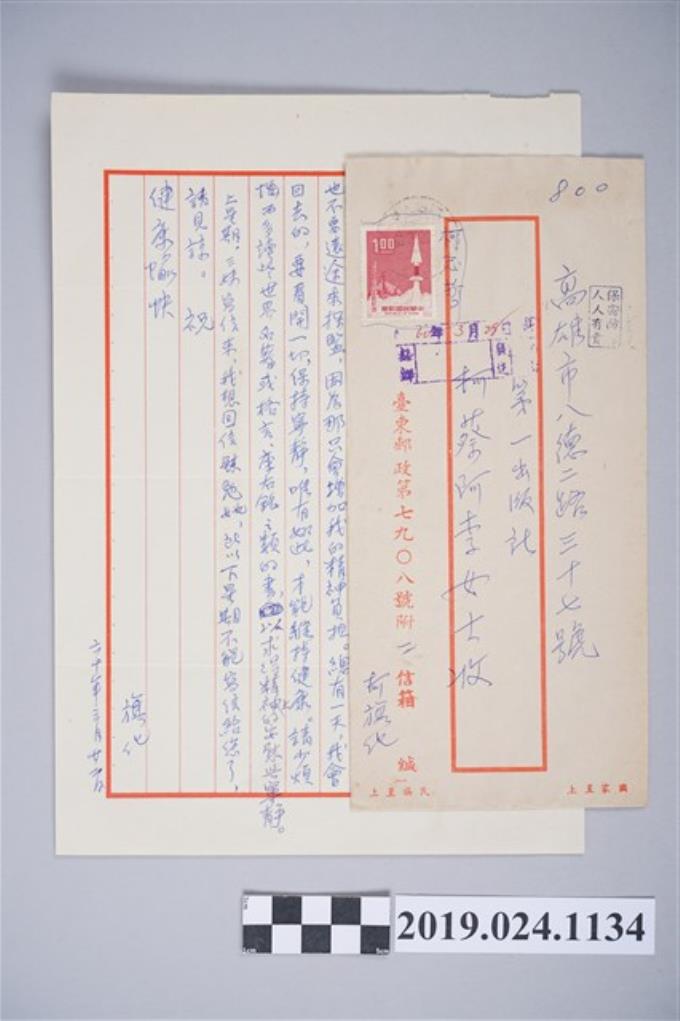 800
高雄市八德二路三十七號
保密防
人人有責
第一出版社
柯蔡阿李女士收
臺東郵政第七九〇八號附二信箱
柯旗化
緘
民族至上
國家至上
1.00
60年3月29
也不要遠途來探監，因為那只會增加我的精神負担。總有一天，我會
回去的，要看開一切，保持寧靜，唯有如此，才能維持健康。請少煩
惱而多讀些世界名著或格言、座右銘之類的書，以求得精神的安慰與寧靜。
上星期，三妹寫信來，我想回信勉她，所以下星期不能寫信給您了，
請見諒。 祝
健康愉快
旗化
六十年三月廿六日
2019.024.1134